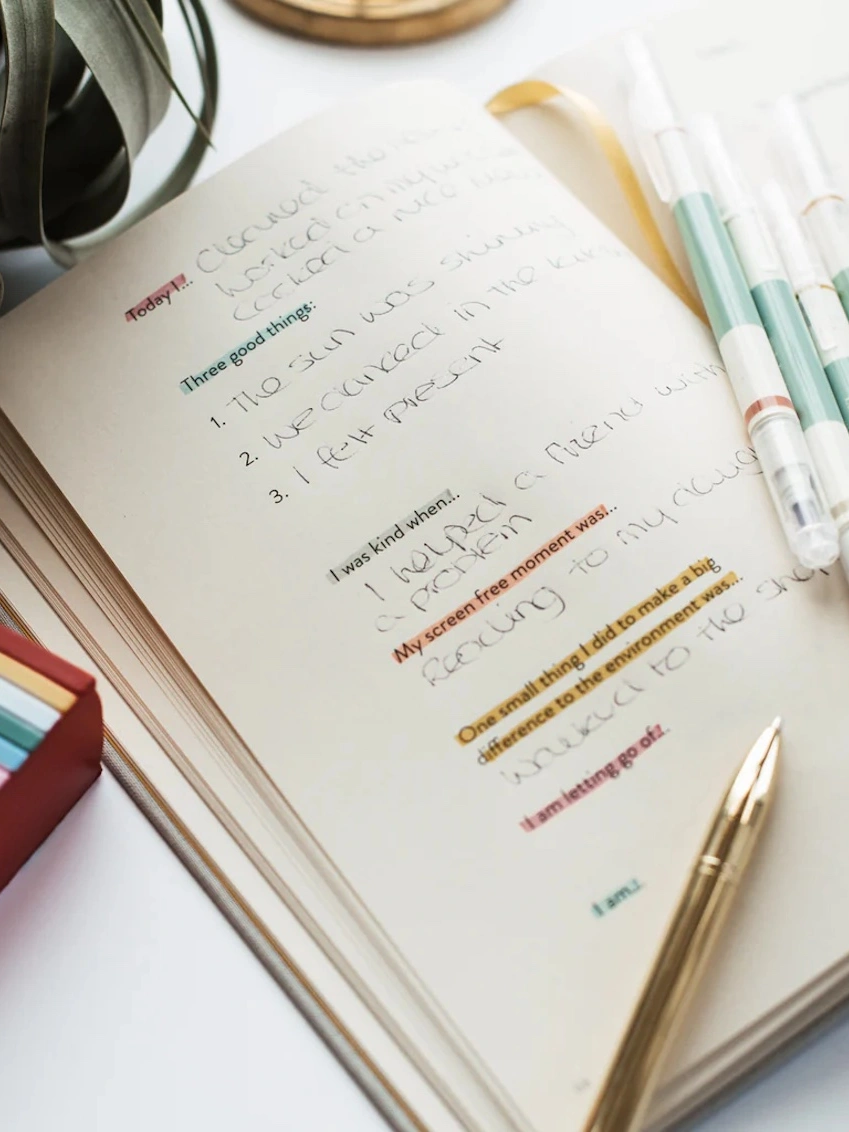 Today I...
Cleaned the
worked on my
cooked a nice
Three good things:
1. The sun was shining
2. We danced in the
3. I felt present
I was kind when...
I helped a friend with
a problem
My screen free moment was...
Reading to my
One small thing I did to make a big
difference to the environment was...
Walked to the
I am letting go of...
I am...